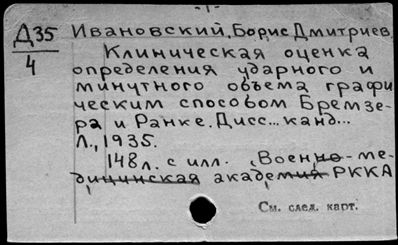 -1-
Д35 Ивановский, Борис Дмитриев
4 Клиническая оценка
определения ударного и
минутного объема графи
ческим способом Бремзе-
ра и Ранке. Дисс... канд...
Л., 1935.
148л. с илл. (Военно-ме-
дицинская академия РККА
См. след. карт.